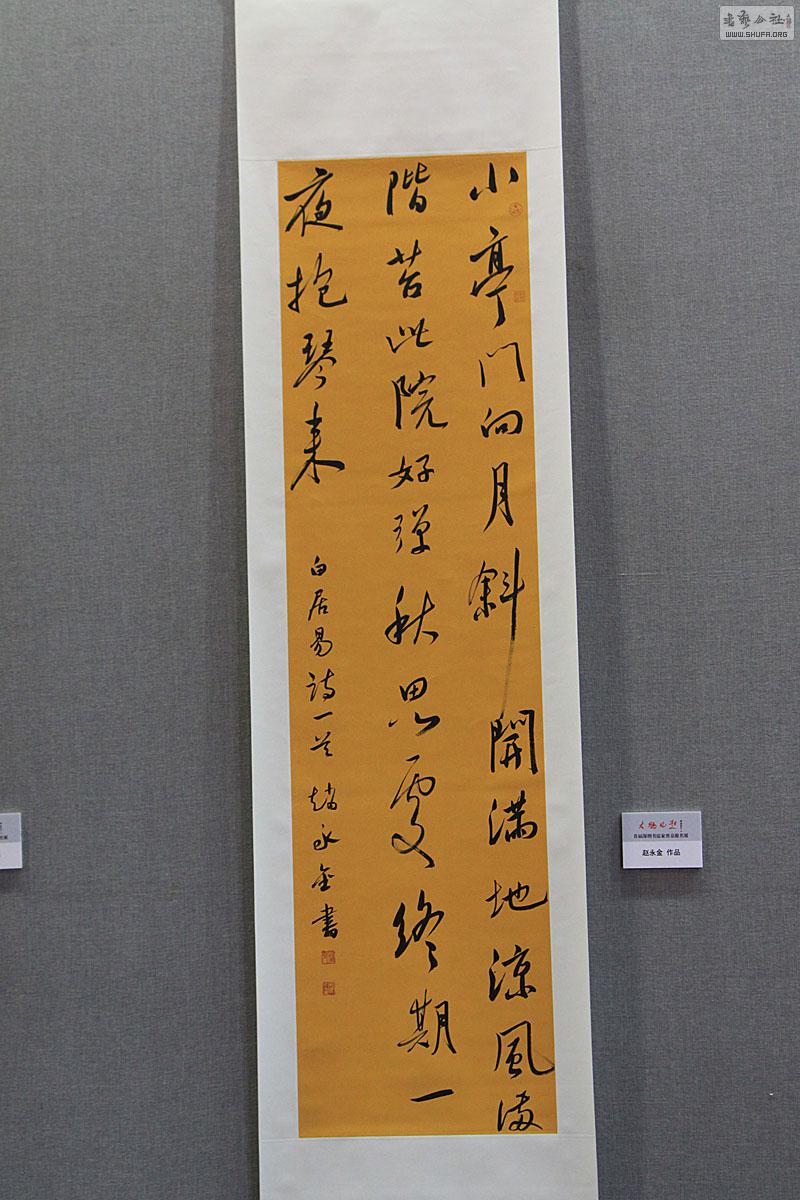 小亭門向月斜開滿地涼風滿
階苔此院好彈秋思處終期一
夜抱琴来
白居易詩一首 趙永金書
赵永金 作品
書藝公社
WWW.SHUFA.ORG